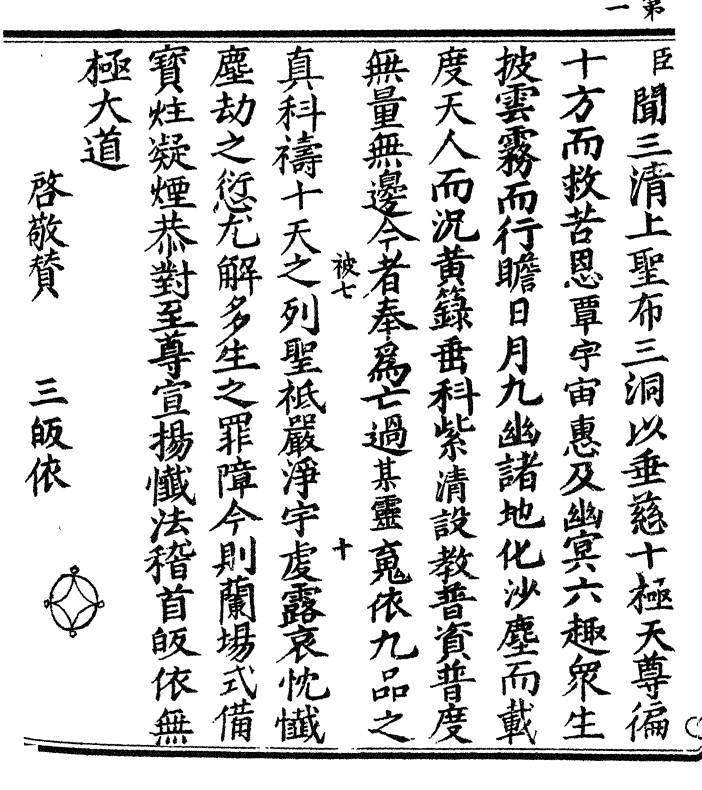 第一
臣聞三清上聖布三洞以垂慈十極天尊徧
十方而救苦恩覃宇宙惠及幽冥六趣眾生
披雲霧而行瞻日月九幽諸地化沙塵而載
度天人而況黃籙垂科紫清設教普資普度
無量無邊今者奉爲亡過某靈䰟依九品之
被七
真科禱十天之列聖祗嚴淨宇虔露哀忱懺
十
塵劫之愆尤解多生之罪障今則蘭場式備
寶炷凝煙恭對至尊宣揚懺法稽首皈依無
極大道
啓敬贊 三皈依